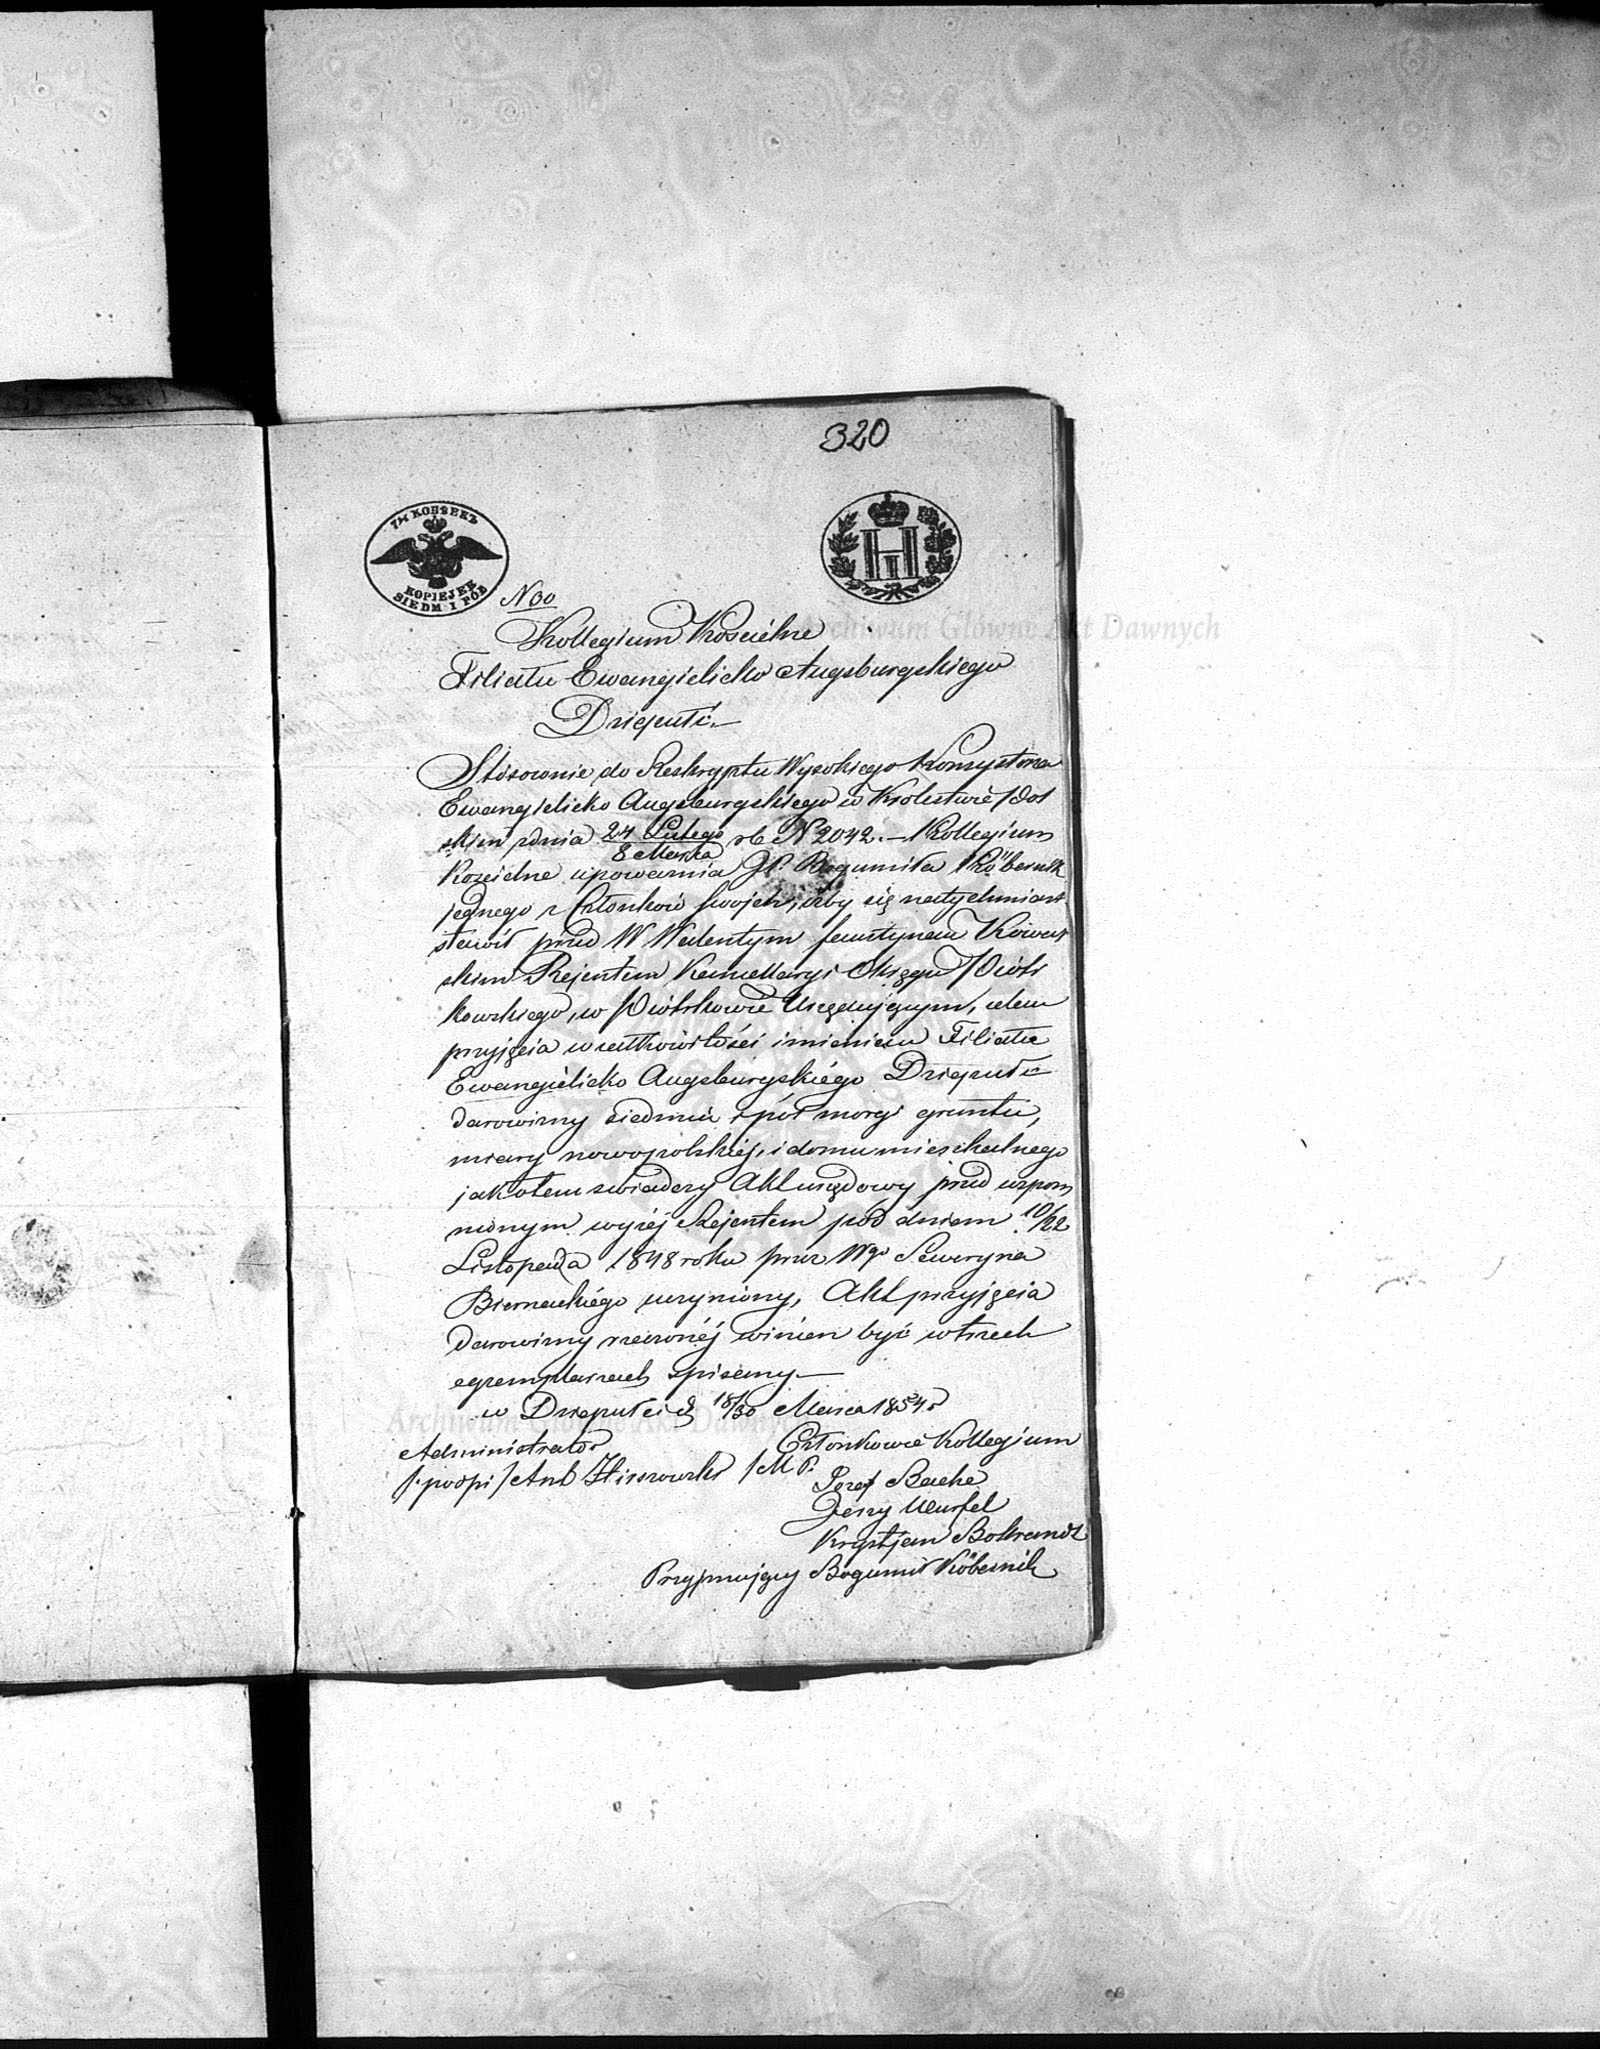 320
7½ КОПѢЕКЪ
KOPIEJEK
SIEDM I PÓŁ
N 30
Archiwum Główne Akt Dawnych
Kollegium Kościelne
Filiału Ewangielicko Augsburgskiego
Dziepułć.—
Stósownie do Reskryptu Wysokiego Konsystorza
Ewangielicko Augsburgskiego w Królestwie Pol
skim z dnia 24 Lutego/8 Marca rb N 2042.— Kollegium
Kościelne upoważnia JP. Bogumiła Köbernik
jednego z Członków swojch, iżby się natychmiast
stawił przed W Walentym Faustynem Kowal
skim Rejentem Kancellaryi Okręgu Piotr
kowskiego, w Piotrkowie Urzędującym, celem
przyjęcia w całkowitości imieniem Filiału
Ewangielicko Augsburgskiego Dziepułć
darowizny siedmiu i pół morgi gruntu,
miary nowopolskiéj, i domu mieszkalnego
jak o tem świadczy Akt urzędowy przed wspom
nionym wyżej Rejentem pód dniem 10/22
Listopada 1848 roku przez Wgo Seweryna
Biernackiégo uczyniony, Akt przyjęcia
darowizny rzeczonéj winien być w trzech
egzemplarzach spisany—
w Dziepułci d 18/30 Marca 1854 r
Archiwum Główne Akt Dawnych
Administrator
Członkowie Kollegium
/:podpi/ Ant M P.
Józef Bache
Jerzy Wurfel
Krystjan Bokrandt
Przyjmujący Bogumił Köbernik